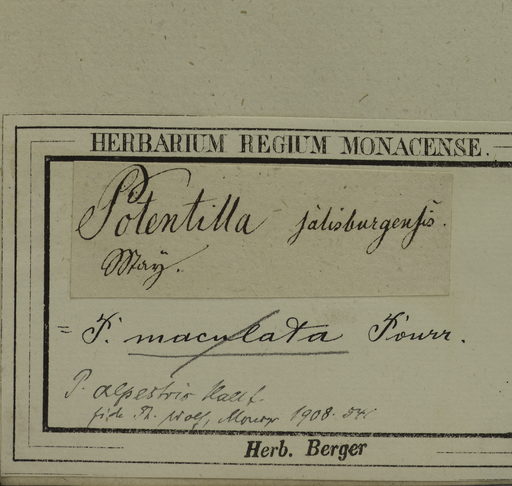 HERBARIUM REGIUM MONACENSE.
Potentilla salisburgensis.
May.
= P. maculata Pourr.
P. alpestris Hall f.
fide Th. Wolf, Monogr 1908.
Herb. Berger